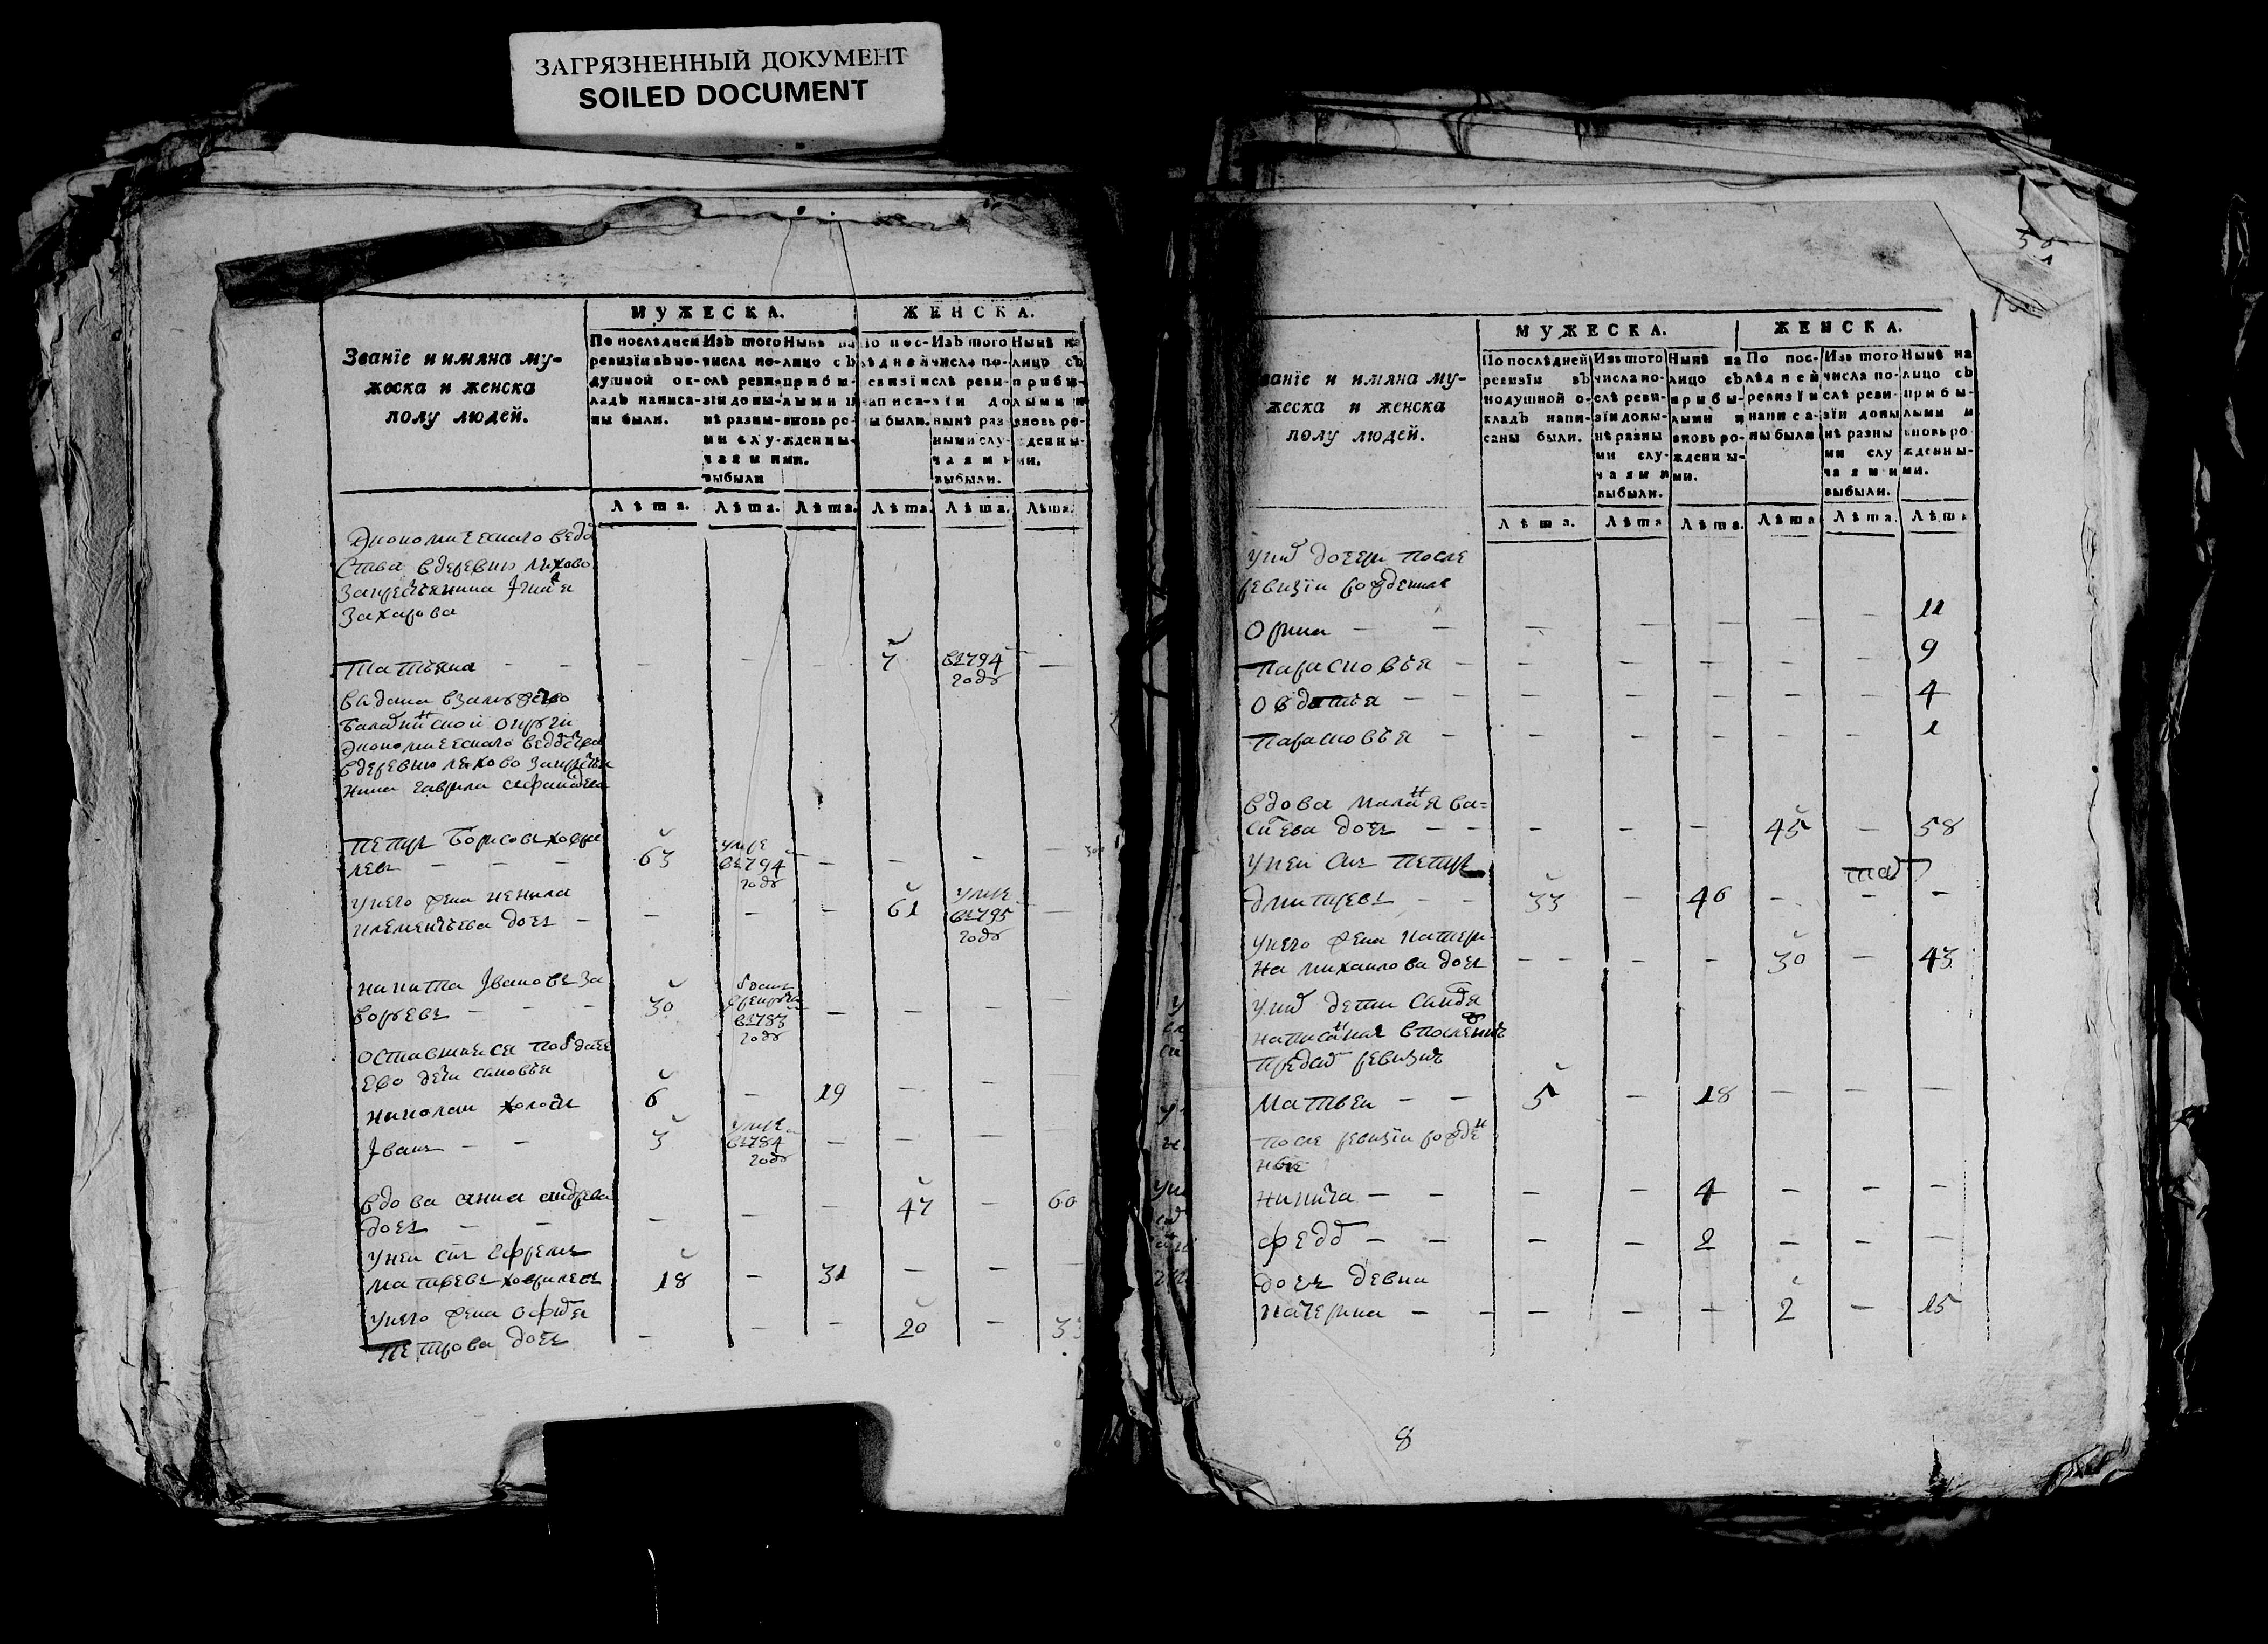 ЗАГРЯЗНЕННЫЙ ДОКУМЕНТ
SOILED DOCUMENT
МУЖЕСКА.
ЖЕНСКА.
Званїе и имяна му-
жеска и женска
полу людей.
По послѣдней
ревизїи въ по-
душной ок-
ладъ написа-
ны были.
Изъ того
числа по-
слѣ реви-
зїи доны-
нѣ разны-
ми слу-
чаями
выбыли
Нынѣ на
лицо съ
прибы-
лыми и
вновь ро-
жденны-
ми.
По пос-
лѣдней
ревизїи
написа-
ны были.
Изъ того
числа по-
слѣ реви-
зїи до
нынѣ раз
ными слу-
чаями
выбыли.
Нынѣ на
лицо съ
прибы-
лыми и
вновь ро-
жденны-
ми.
Лѣта. Лѣта. Лѣта. Лѣта. Лѣта. Лѣта.
Экономическаго ведо
ства вдеревню Ляхово
закрестьянина
Захарова
Татьяна - - - - - 7 въ794 годо -
выдана взамужество
округи
Экономическаго ведомства
вдеревню Ляхово закрестья
нина Гаврила
Петръ Борисовъ
левъ - - - 63 умре въ794 годо - - - -
унего жена Ненила
Клементьева дочь - - - - 61 умре въ795 годо -
Никита Iвановъ За
- - - 30 в783 годо - - - -
оставшиеся
Ево дети сыновья
Николай 6 - 19 - - -
Iванъ - - 3 умре въ784 годо - - - -
вдова Анна Андреева
дочь - - - - - 47 - 60
унеи сынъ Ефремъ
18 - 31 - - -
унего жена Офимья
Петрова дочь - - - 20 - 3
МУЖЕСКА.
ЖЕНСКА.
Званїе и имяна му-
жеска и женска
полу людей.
По послѣдней
ревизїи въ
подушной о-
кладъ напи-
саны были.
Изъ того
числа по-
слѣ реви-
зїи доны-
нѣ разны
ми слу-
чаями
выбыли.
Нынѣ на
лицо съ
прибы-
лыми и
вновь ро-
жденны-
ми.
По пос-
лѣдней
ревизїи
написа-
ны были
Изъ того
числа по-
слѣ реви-
зїи доны
нѣ разны
ми слу
чаями
выбыли.
Нынѣ на
лицо съ
прибы-
лыми и
вновь ро
жденны-
ми.
Лѣта. Лѣта Лѣта. Лѣта Лѣта. Лѣта
уних дочери после
ревизїи рожденные
Орина - - - - - - - 11
Парасковья - - - - - - 9
Овдотья - - - - - - - 4
Парасковья - - - - - - 1
вдова Маланья Ва=
сильева дочь - - - - - 45 - 58
унеи сынъ Петръ
Дмитревъ - - 33 - 46 - - -
унего жена Катери-
на Михаилова дочь - - - - 30 - 43
уних дети
написанная впоследней
предъ сей ревизии
Матвеи - - 5 - 18 - - -
после ревизїи рожден
ные
Никита - - - - 4 - - -
Федор - - - - 2 - - -
дочь девка
Катерина - - - - - 2 - 15
8